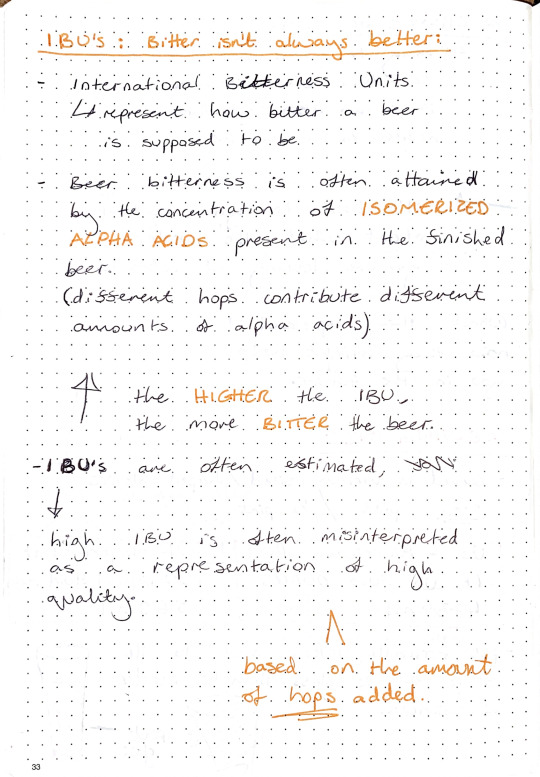 IBU's: Bitter isn't always better:
- International Bitterness Units.
↳ represent how bitter a beer
is supposed to be.
- Beer bitterness is often attained
by the concentration of ISOMERIZED
ALPHA ACIDS present in the finished
beer.
(different hops contribute different
amounts of alpha acids)
↑ the HIGHER the IBU,
the more BITTER the beer.
- IBU's are often estimated,
↓
high IBU is often misinterpreted
as a representation of high
quality.
based on the amount
of hops added.
33